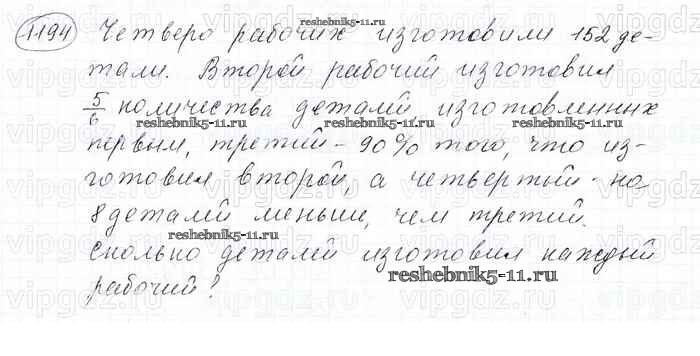 1194 Четверо рабочих изготовили 152 де-
тали. Второй рабочий изготовил
5/6 количества деталей изготовленных
первым, третий - 90% того, что из-
готовил второй, а четвертый - на
8 деталей меньше, чем третий.
Сколько деталей изготовил каждый
рабочий?
reshebnik5-11.ru
reshebnik5-11.ru
reshebnik5-11.ru
reshebnik5-11.ru
reshebnik5-11.ru
reshebnik5-11.ru
vipgdz.ru